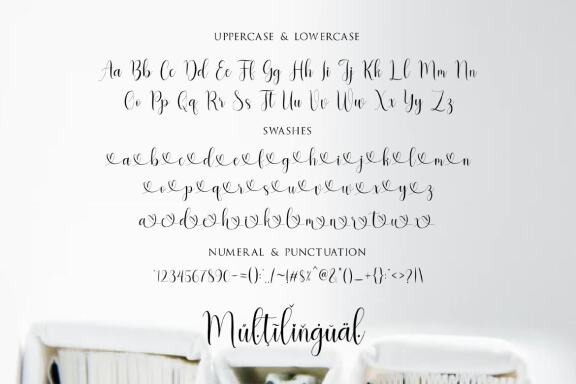 UPPERCASE & LOWERCASE
Aa Bb Cc Dd Ee Ff Gg Hh Ii Jj Kk Ll Mm Nn
Oo Pp Qq Rr Ss Tt Uu Vv Ww Xx Yy Zz
SWASHES
a b c d e f g h i j k l m n
o p q r s u v w x y z
a d h i k l m n r t u x
NUMERAL & PUNCTUATION
Múltïlîņġūäl